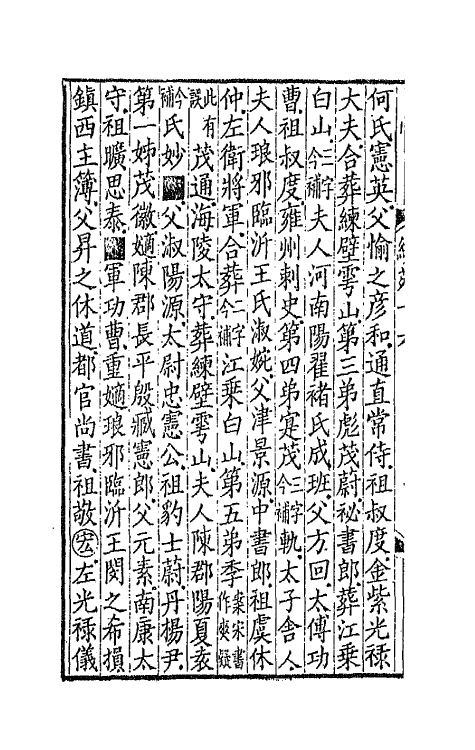 何氏憲英父愉之彦和通直常侍祖叔度金紫光祿
大夫合葬練壁雩山第三弟彪茂蔚祕書郎葬江乗
白山二字今補夫人河南陽翟褚氏成班父方回太傅功
曹祖叔度雍州刺史第四弟寔茂三字今補軌太子舍人
夫人琅邪臨沂王氏淑婉父津景源中書郎祖虞休
仲左衛將軍合葬二字今補江乗白山第五弟季案宋書作疑
此有誤茂通海陵太守葬練壁雩山夫人陳郡陽夏袁
今補氏妙父淑陽源太尉忠憲公祖豹士蔚丹楊尹
第一姊茂徽嫡陳郡長平殷臧憲郎父元素南康太
守祖曠思泰軍功曹重嫡琅邪臨沂王閔之希損
鎮西主簿父昇之休道都官尚書祖敬宏左光祿儀